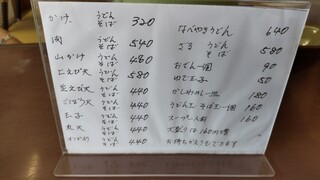 かけ うどん そば 320
肉 うどん そば 540
山かけ うどん そば 480
上えび天 うどん そば 580
並えび天 うどん そば 440
ごぼう天 うどん そば 440
玉子 うどん そば 440
丸天 うどん そば 440
わかめ うどん そば 440
なべやきうどん 640
ざる うどん そば 580
おでん一個 90
ゆで玉子 50
かしわめし一皿 180
うどん玉 そば玉一個 160
スープ一人前 160
大盛りは160円増
お持ちかえりもできます